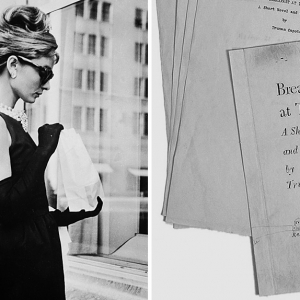 A Short Novel and
by
Truman Capote
Brea
at T
A Sh
and
by
Tr